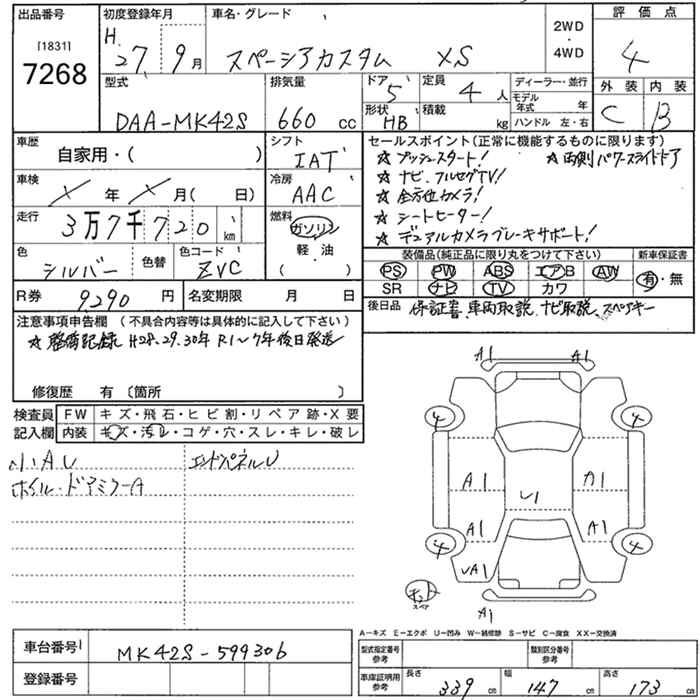 出品番号 [1831] 7268
初度登録年月 H. 27年 9月
車名・グレード スペーシアカスタム XS
2WD・4WD
評価点 4
外装 C 内装 B
型式 DAA-MK42S
排気量 660 cc
ドア 5 形状 HB
定員 4人 積載 kg
ディーラー・並行
モデル年式 年
ハンドル 左・右
車歴 自家用・( )
シフト IAT
車検 X年X月( 日)
冷房 AAC
走行 3万7千720 km
燃料 ガソリン 軽・油 ( )
色 シルバー 色替 色コード ZVC
R券 9,290 円 名変期限 月 日
セールスポイント(正常に機能するものに限ります)
☆ プッシュスタート! ☆ 両側パワースライドドア
☆ ナビ、フルセグTV!
☆ 全方位カメラ!
☆ シートヒーター!
☆ デュアルカメラブレーキサポート!
装備品(純正品に限り丸をつけて下さい) 新車保証書
PS PW ABS エアB AW 有・無
SR ナビ TV カワ
後日品 保証書、車両取説、ナビ取説、スペアキー
注意事項申告欄 (不具合内容等は具体的に記入して下さい)
☆ 整備記録 H28.29.30年 R1〜7年後日発送
修復歴 有〔箇所 〕
検査員記入欄 FW キズ・飛石・ヒビ割・リペア跡・X要
内装 キズ・汚レ・コゲ・穴・スレ・キレ・破レ
小キズ AU エンドパネルU
ホイル・ドアミラーA
A1 A1
4 4
A1 A1
U1
A1 A1
4 4
UA1
スペア
A1
A―キズ E―エクボ U―凹み W―補修跡 S―サビ C―腐食 XX―交換済
車台番号 MK42S-599306
登録番号
型式指定番号 参考 類別区分番号 参考
車庫証明用 参考 長さ 339 cm 幅 147 cm 高さ 173 cm